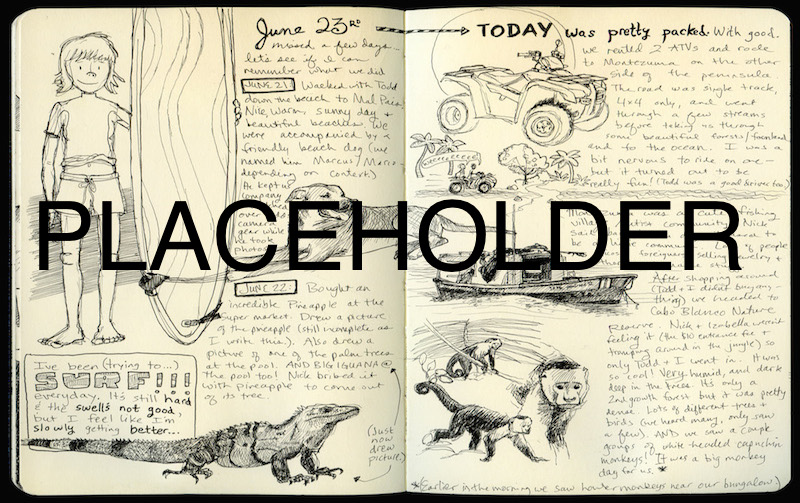 June 23RD
missed a few days...
let's see if I can
remember what we did
JUNE 21: Walked with Todd
down the beach to Mal Pais.
Nice, warm, sunny day +
beautiful beaches. We
were accompanied by a
friendly beach dog (we
named him Marcus/Marco -
depending on context)
He kept us
company
over
camera
gear while
he took
photos
JUNE 22: Bought an
incredible Pineapple at the
super market. Drew a picture
of the pineapple (still incomplete as
I write this). Also drew a
picture of one of the palm trees
at the pool. AND BIG IGUANA @
the pool too! Nick bribed it
with pineapple to come out
of its tree.
I've been (trying to...)
SURF!!!
everyday. It's still hard
& the swell's not good,
but I feel like I'm
slowly getting better...
(Just
now
drew
picture.)
TODAY was pretty packed. With good.
we rented 2 ATVs and rode
to Montezuma on the other
side of the peninsula.
The road was single track,
4x4 only, and went
through a few streams
before taking us through
some beautiful forests/farmland
and to the ocean. I was a
bit nervous to ride on one -
but it turned out to be
really fun! (Todd was a good driver too)
PLACEHOLDER
Montezuma was a cute fishing
After shopping around
(Todd + I didn't buy any-
thing) we headed to
Cabo Blanco Nature
Reserve. Nick + Izabella weren't
feeling it (the $10 entrance fee +
tromping around in the jungle) so
only Todd + I went in. It was
so cool! Very humid, and dark
deep in the trees. It's only a
2nd growth forest but it was pretty
dense. Lots of different trees +
birds (we heard many, only saw
a few). AND we saw a couple
groups of white-headed capuchin
monkeys! It was a big monkey
day for us. *
*(Earlier in the morning we saw howler monkeys near our bungalow.)